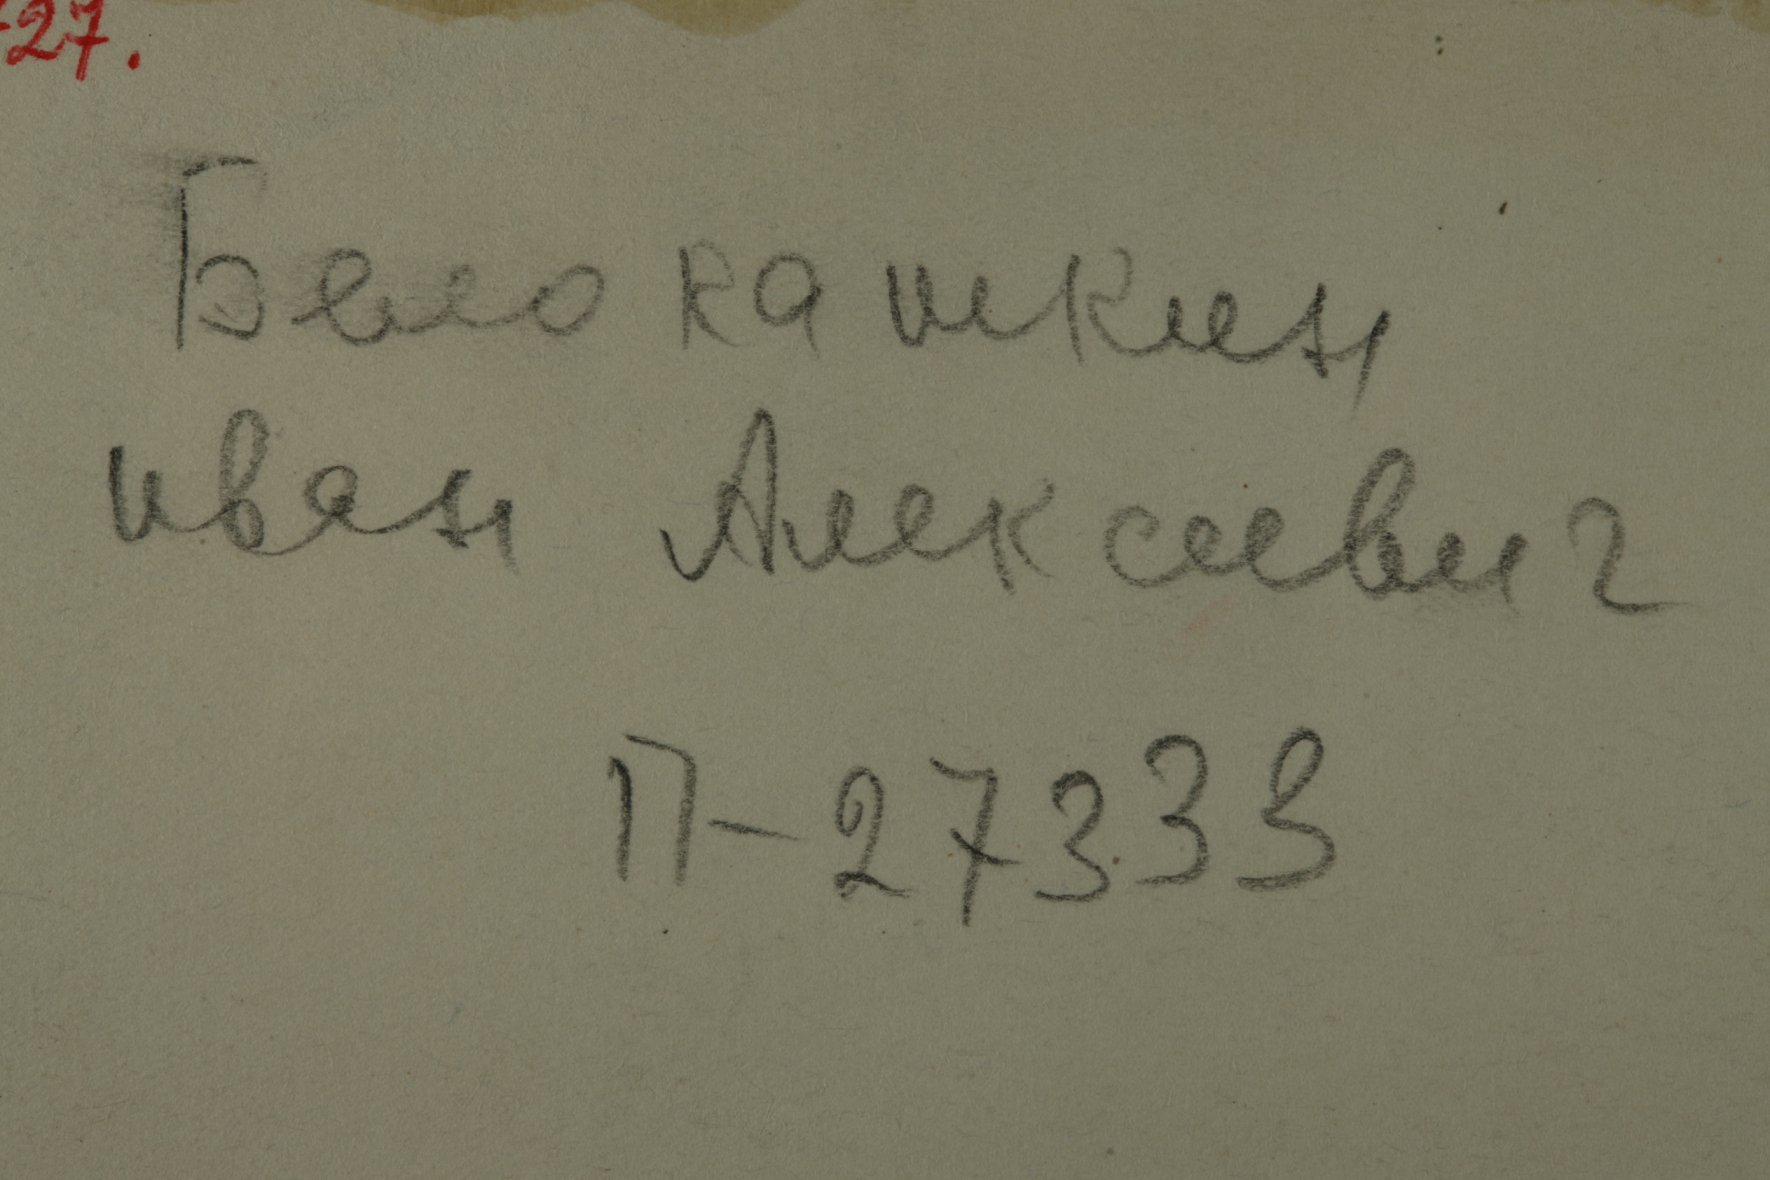 -27.
Белокашкин
иван Алексеевич
П-27333